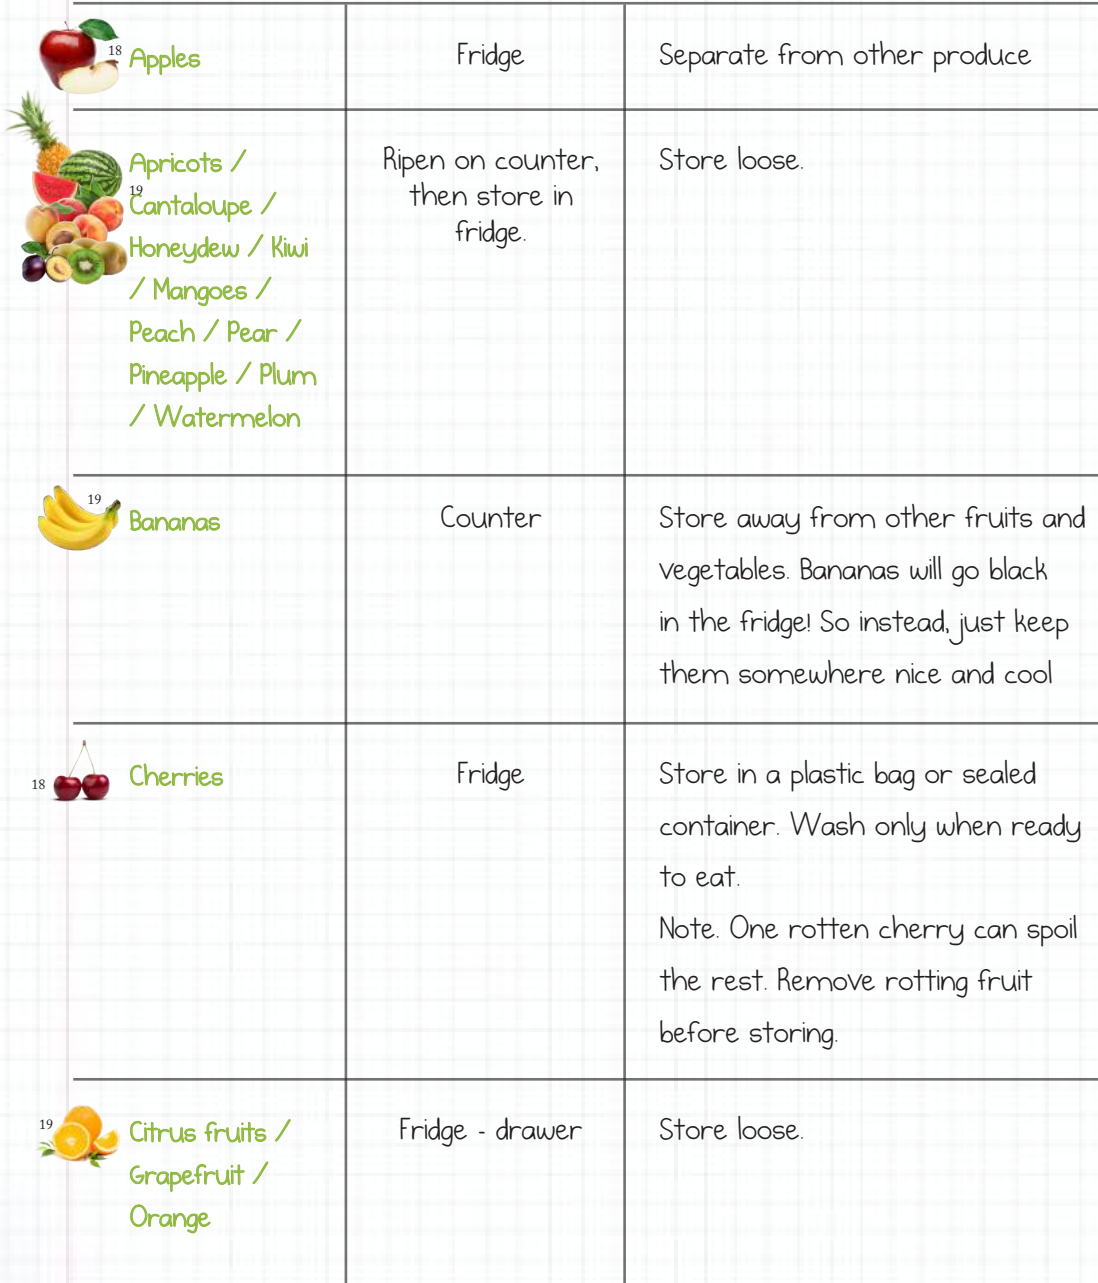 18 Apples
Fridge
Separate from other produce
Apricots /
19
Cantaloupe /
Honeydew / Kiwi
/ Mangoes /
Peach / Pear /
Pineapple / Plum
/ Watermelon
Ripen on counter,
then store in
fridge.
Store loose.
19
Bananas
Counter
Store away from other fruits and
vegetables. Bananas will go black
in the fridge! So instead, just keep
them somewhere nice and cool
18 Cherries
Fridge
Store in a plastic bag or sealed
container. Wash only when ready
to eat.
Note. One rotten cherry can spoil
the rest. Remove rotting fruit
before storing.
19 Citrus fruits /
Grapefruit /
Orange
Fridge - drawer
Store loose.